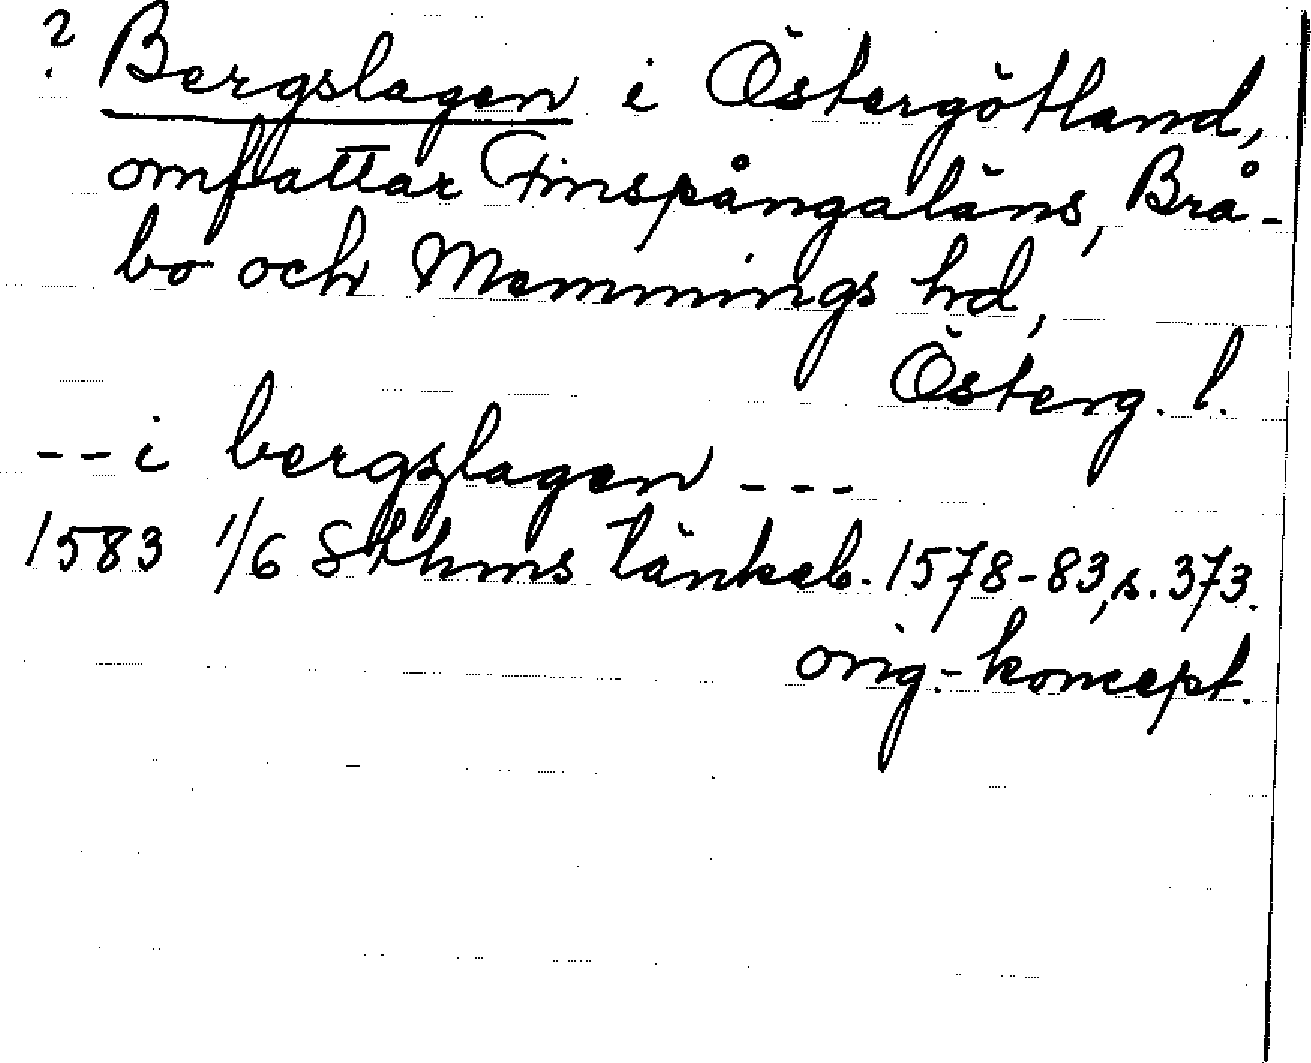 ? Bergslagen i Östergötland,
omfattar Finspångaläns, Brå-
bo och Memmings hd,
Österg. l.
-- i bergzlagen ---
1583 1/6 Sthms tänkeb. 1578-83, s. 373.
orig.-koncept.